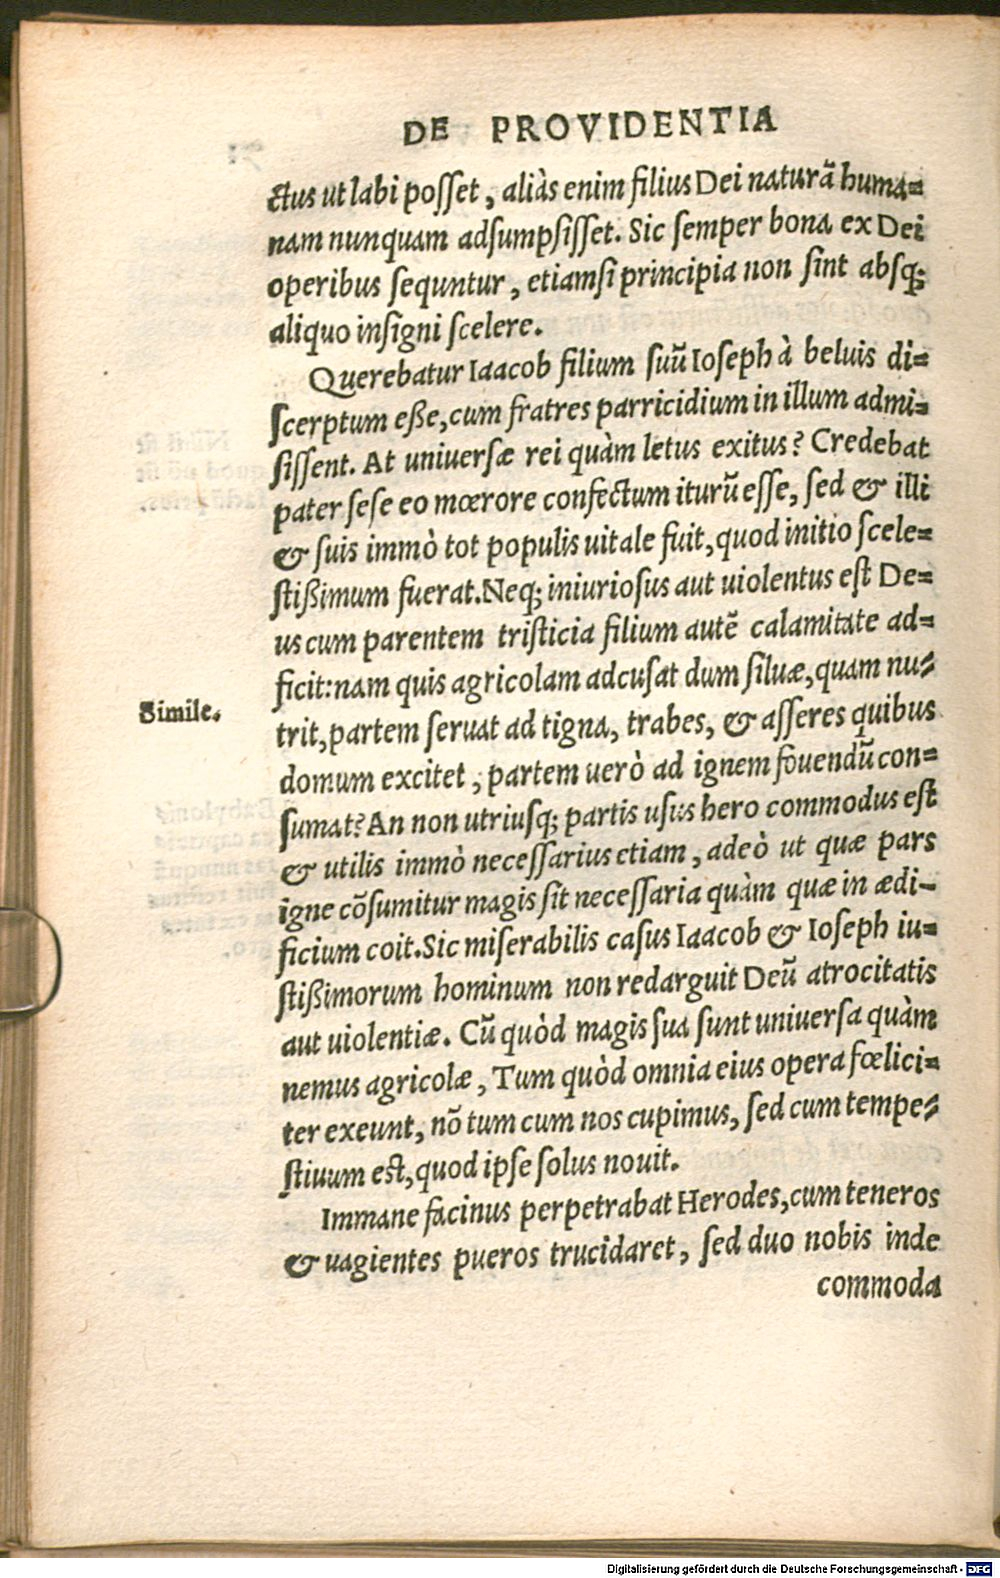 DE PROVIDENTIA
ctus ut labi posset, aliàs enim filius Dei naturā huma=
nam nunquam adsumpsisset. Sic semper bona ex Dei
operibus sequntur, etiamsi principia non sint absq;
aliquo insigni scelere.
Querebatur Iaacob filium suū Ioseph à beluis di=
scerptum eße, cum fratres parricidium in illum admi=
sissent. At universæ rei quàm letus exitus? Credebat
pater sese eo mœrore confectum iturū esse, sed & illi
& suis immò tot populis uitale fuit, quod initio scele=
stißimum fuerat. Neq; iniuriosus aut uiolentus est De=
us cum parentem tristicia filium autē calamitate ad=
ficit: nam quis agricolam adcusat dum siluæ, quam nu=
Simile.
trit, partem seruat ad tigna, trabes, & asseres quibus
domum excitet, partem uerò ad ignem fouendū con=
sumat? An non utriusq; partis usus hero commodus est
& utilis immò necessarius etiam, adeò ut quæ pars
igne cōsumitur magis sit necessaria quàm quæ in ædi=
ficium coit. Sic miserabilis casus Iaacob & Ioseph iu=
stißimorum hominum non redarguit Deū atrocitatis
aut uiolentiæ. Cū quòd magis sua sunt uniuersa quàm
nemus agricolæ, Tum quòd omnia eius opera fœlici=
ter exeunt, nō tum cum nos cupimus, sed cum tempe=
stiuum est, quod ipse solus nouit.
Immane facinus perpetrabat Herodes, cum teneros
& uagientes pueros trucidaret, sed duo nobis inde
commoda
Digitalisierung gefördert durch die Deutsche Forschungsgemeinschaft - DFG